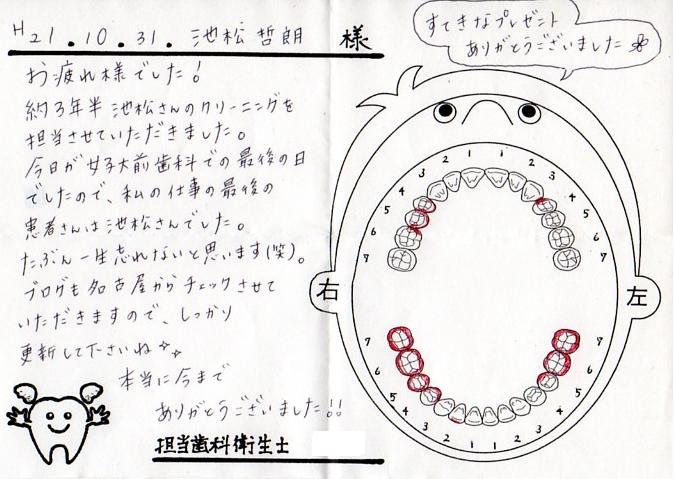 H21.10.31. 池松 哲朗 様
お疲れ様でした!
約3年半 池松さんのクリーニングを
担当させていただきました。
今日が女子大前歯科での最後の日
でしたので、私の仕事の最後の
患者さんは池松さんでした。
たぶん一生忘れないと思います(笑)。
ブログも名古屋からチェックさせて
いただきますので、しっかり
更新して下さいね
本当に今まで
ありがとうございました!!
担当歯科衛生士
すてきなプレゼント
ありがとうございました
1 1
2 2
3 3
4 4
5 5
6 6
7 7
右 左
7 7
6 6
5 5
4 4
3 3
2 2
1 1